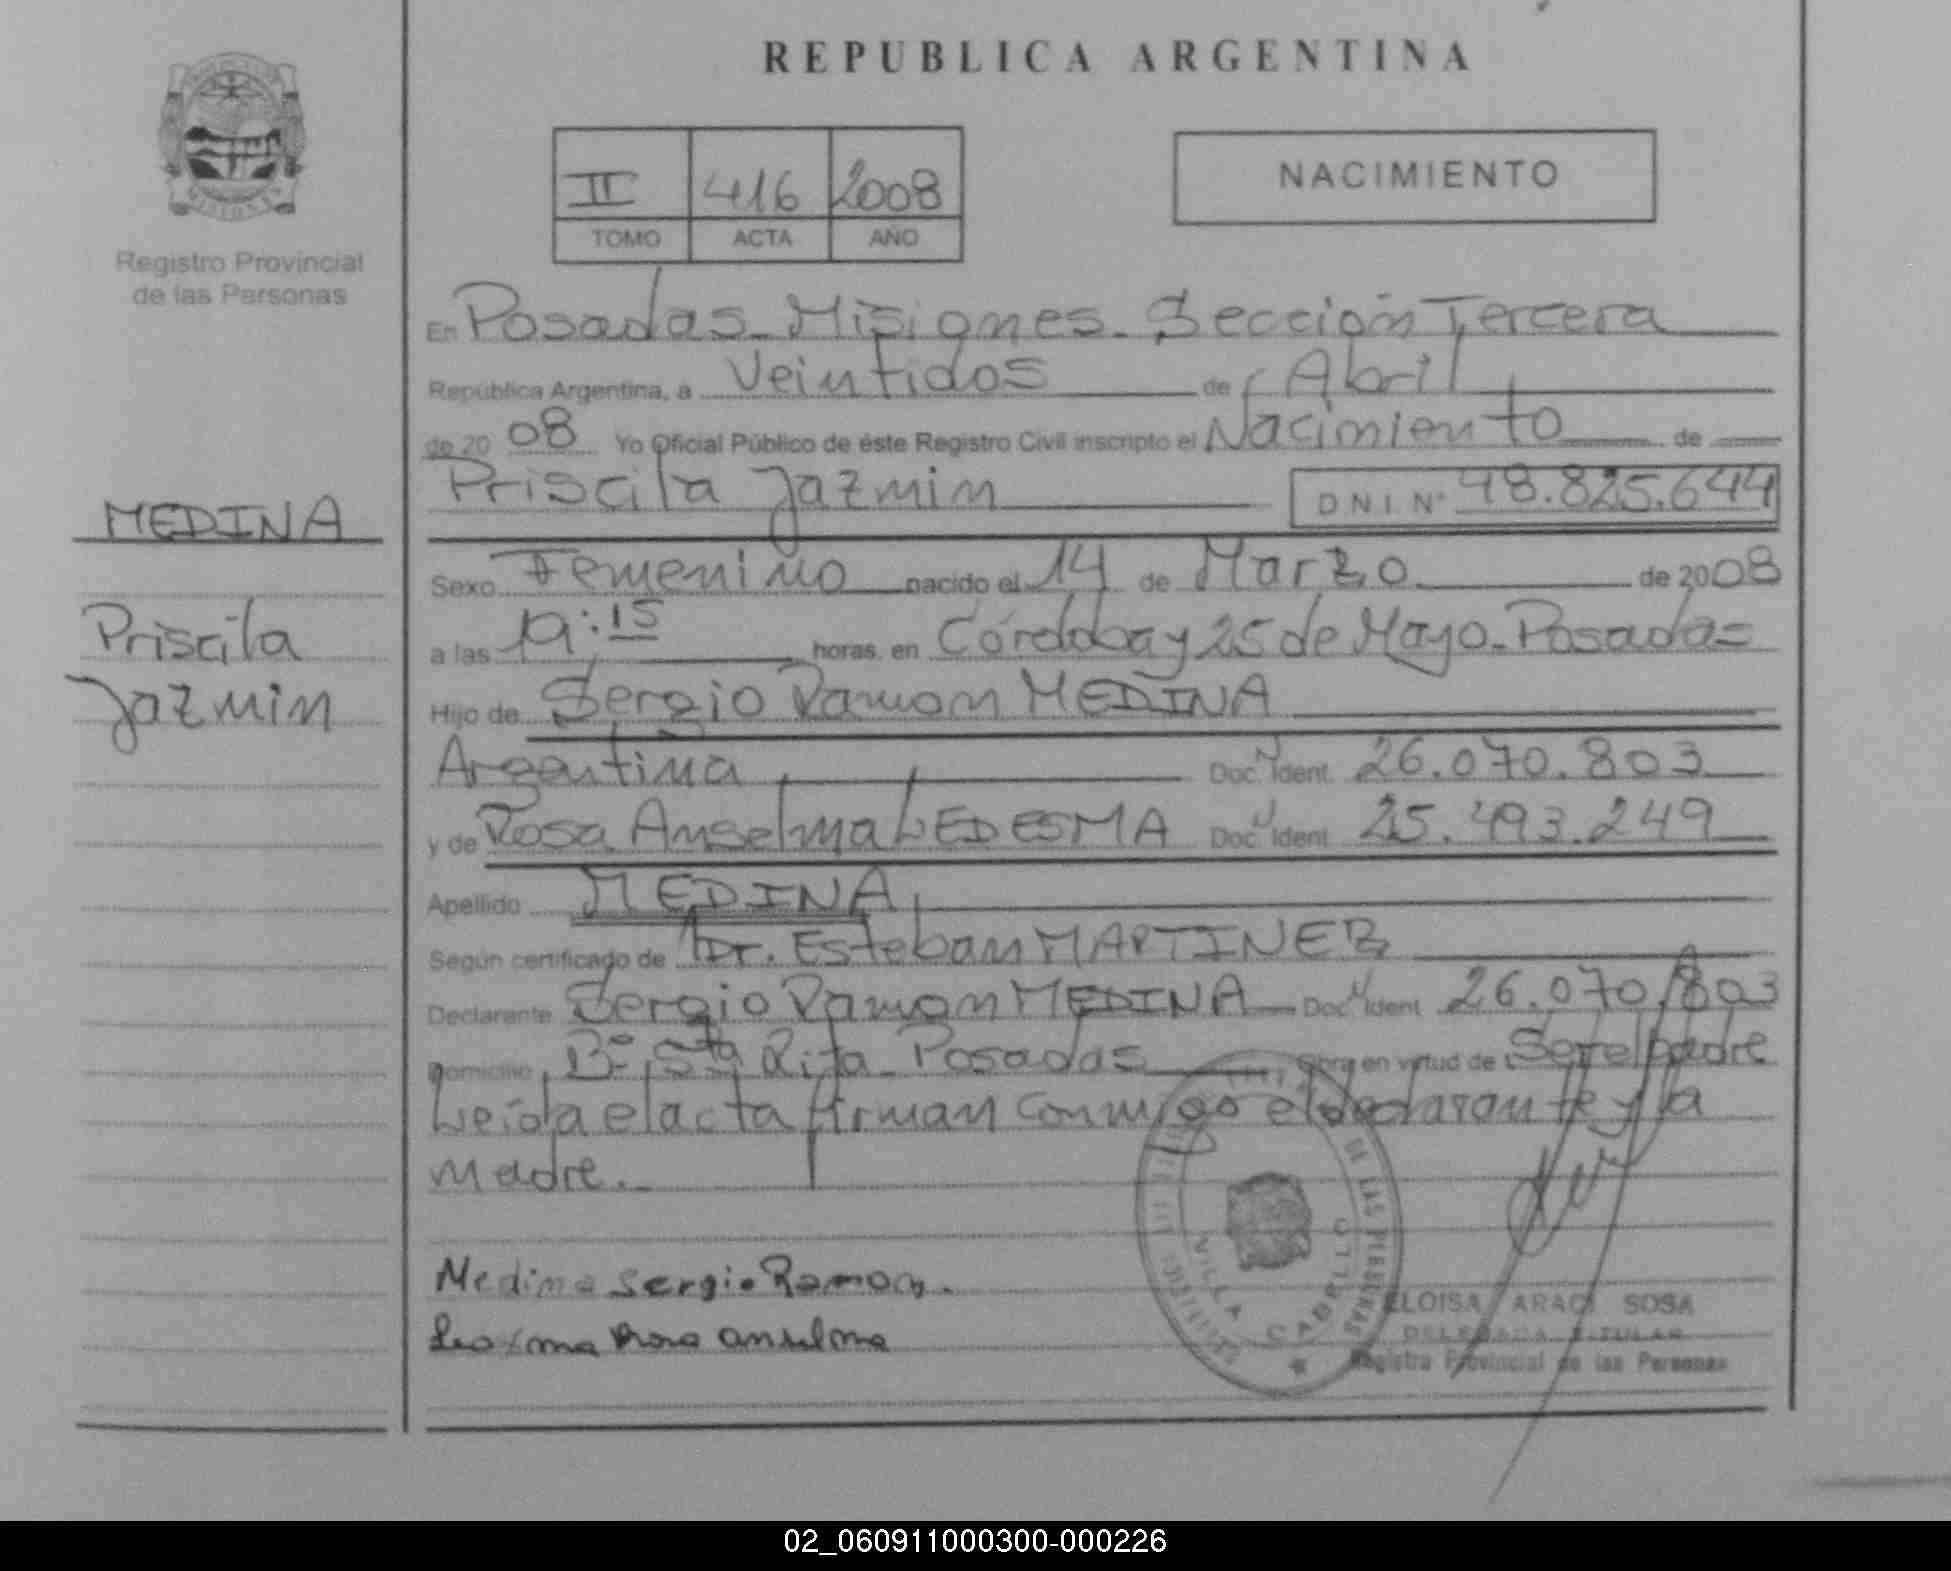 REPUBLICA ARGENTINA
II 416 2008
TOMO ACTA AÑO
NACIMIENTO
Registro Provincial
de las Personas
MEDINA
Priscila
Jazmin
En Posadas Misiones Sección Tercera
República Argentina, a Veintidos de Abril
de 2008 Yo Oficial Público de éste Registro Civil inscripto el Nacimiento de
Priscila Jazmin DNI Nº 48.825.644
Sexo Femenino nacido el 14 de Marzo de 2008
a las 19:15 horas en Córdoba y 25 de Mayo - Posadas
Hijo de Sergio Ramon MEDINA
Argentina Doc. Ident. 26.070.803
y de Rosa Anselma LEDESMA Doc. Ident. 25.493.249
Apellido MEDINA
Según certificado de Dr. Esteban MARTINEZ
Declarante Sergio Ramon MEDINA Doc. Ident. 26.070.803
Domicilio Bº Sta Rita - Posadas Obra en virtud de Ser el padre
Leída el acta firman conmigo el declarante y la
madre.
Medina Sergio Ramon.
Rosa anselma
DE LAS PERSONAS
VILLA CABELLO
ELOISA ARACI SOSA
DELEGADA TITULAR
Registro Provincial de las Personas
02_060911000300-000226